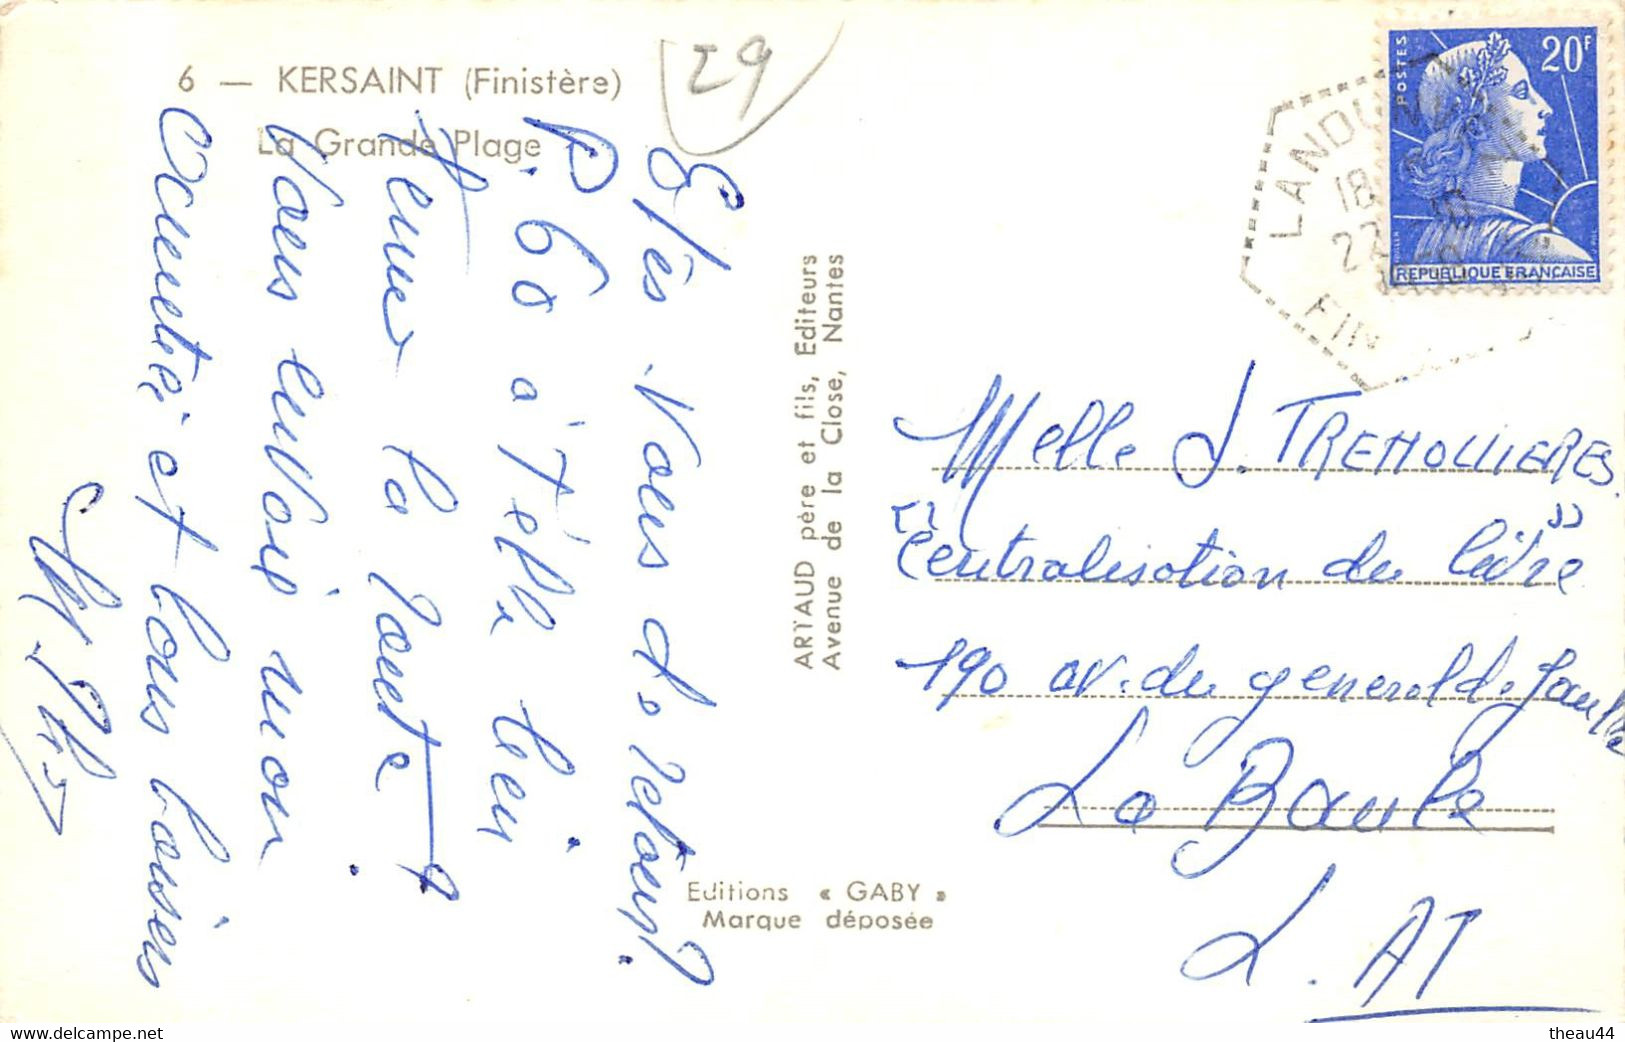 6 — KERSAINT (Finistère)
La Grande Plage
29
Etes Vous de retour ?
P. 60 a t'elle lieu
tenue la route ?
Vous envoie mon
amitié et bons baisers
ARTAUD père et fils, Editeurs
Avenue de la Close, Nantes
Editions « GABY »
Marque déposée
POSTES
20F
REPUBLIQUE FRANCAISE
LANDUN
18
22
FIN
Melle J. TREMOLLIERES
"Centralisation du livre"
190 av. du general de Gaulle
La Baule
L. AT
www.delcampe.net
theau44